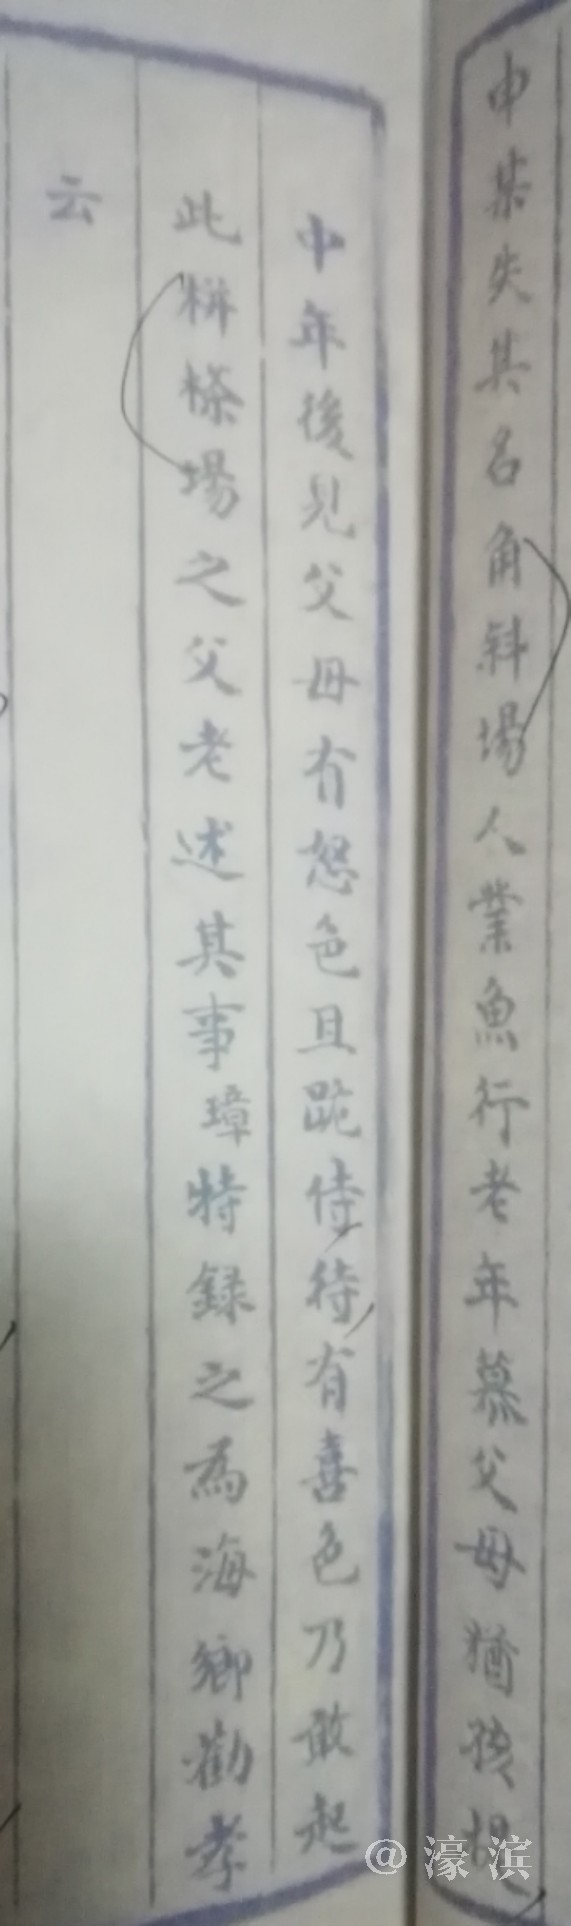 申某失其名角斜場人業魚行老年慕父母猶孩提
中年後見父母有怒色且跪侍待有喜色乃敢起
此栟樣場之父老述其事璋特録之為海鄉勸孝
云
@濠滨